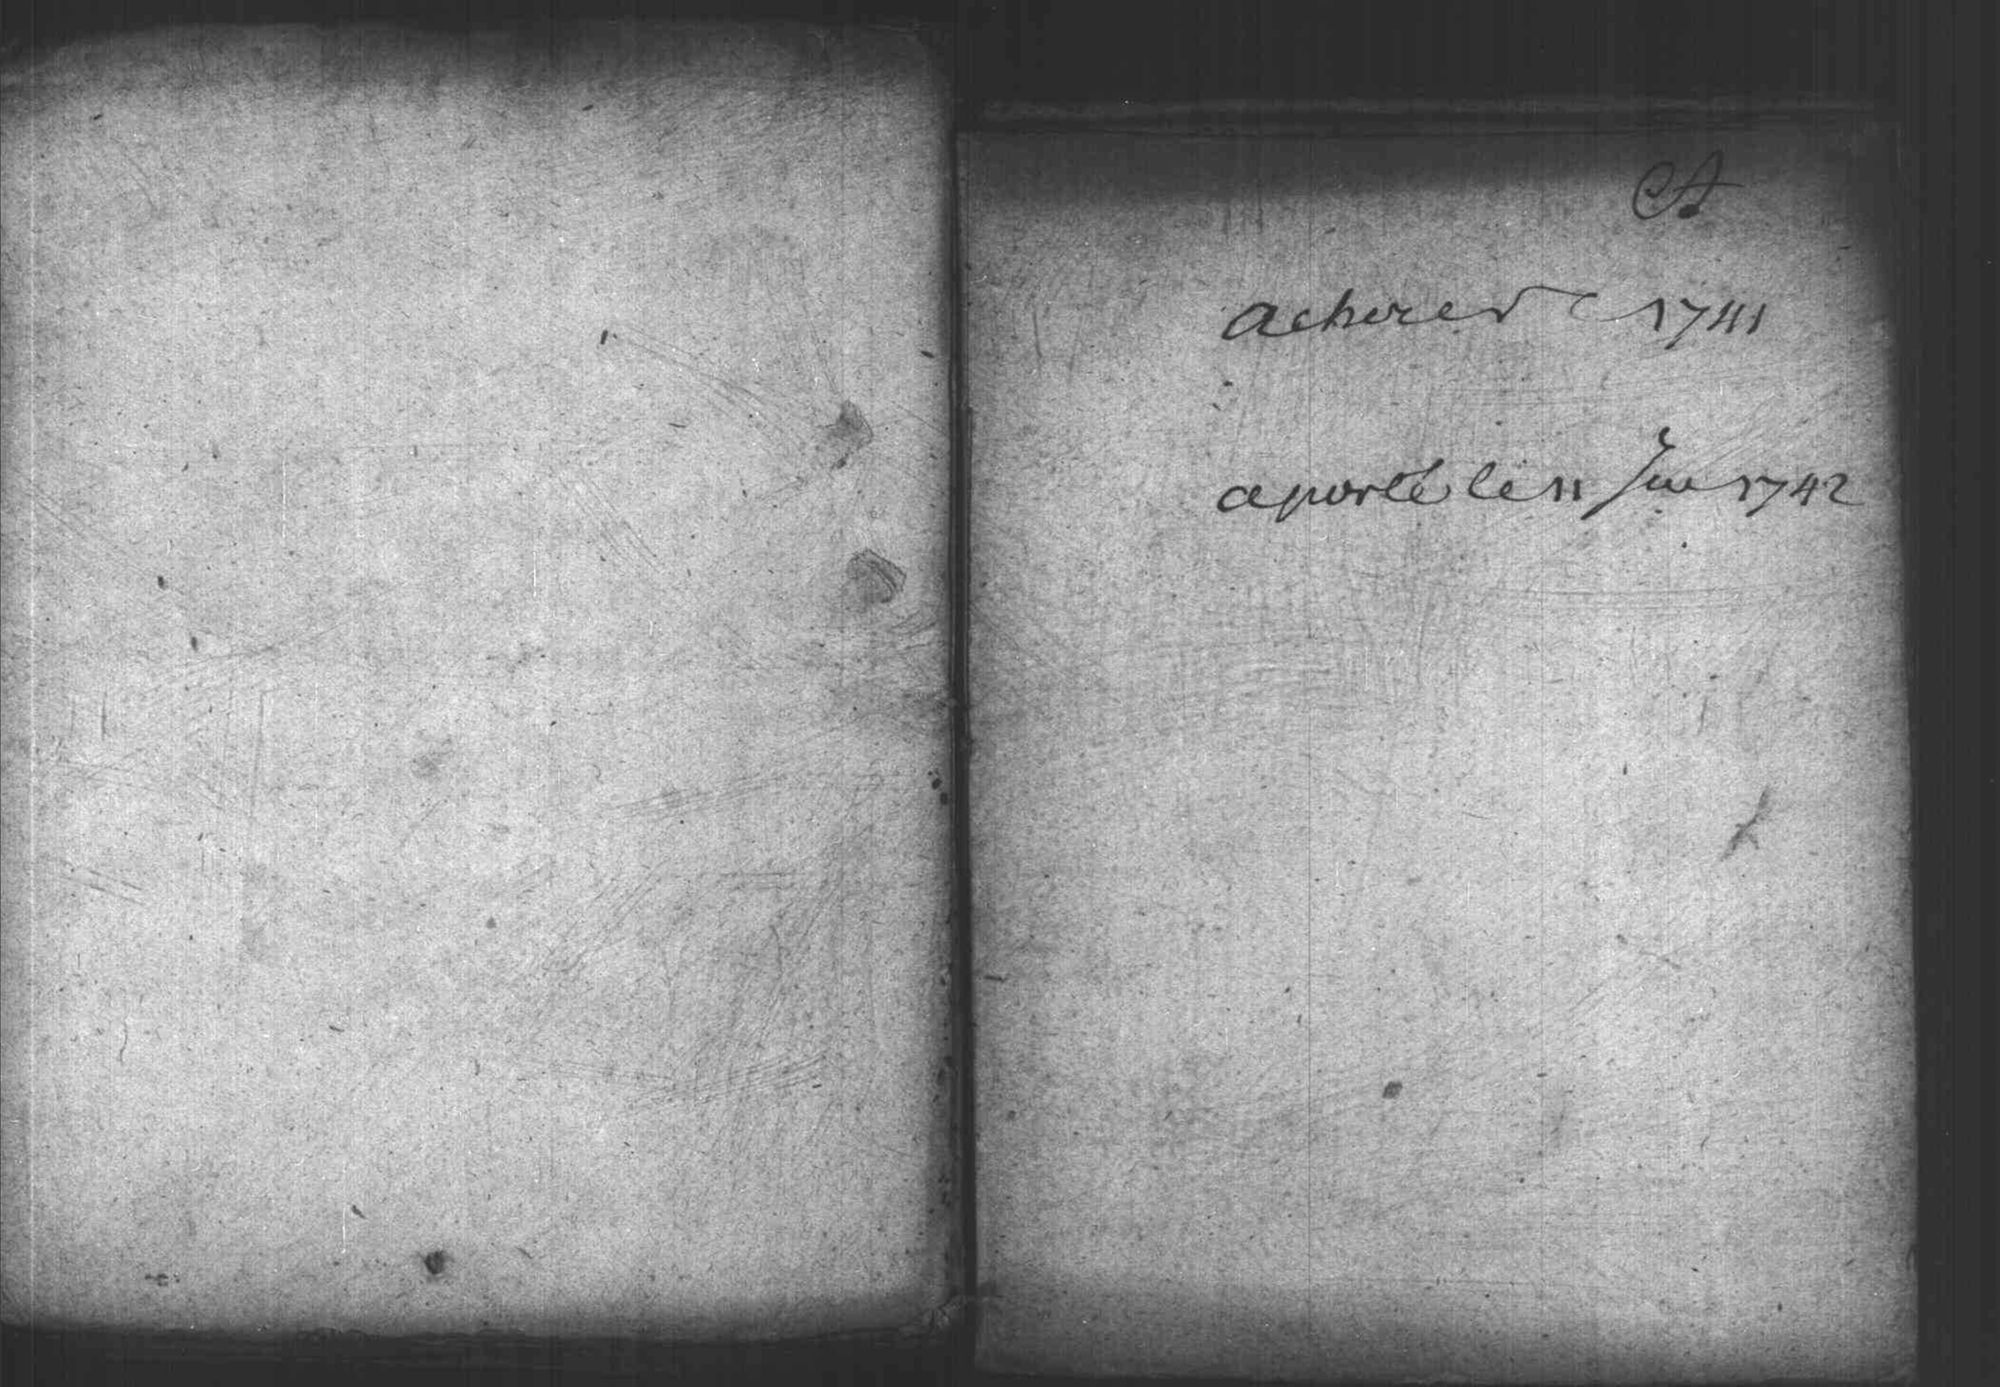 A
acheres 1741
aporté le 11 Jan 1742